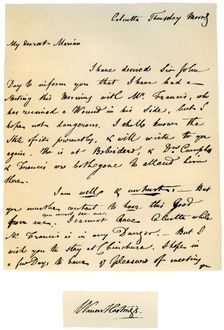 Calcutta Thursday Morng
My dearest Marian
I have desired Sir John
Day to inform you that I have had a
Meeting this Morning with Mr. Francis, who
has received a Wound in his Side, but I
hope not dangerous. I shall know the
State of it presently, & will write to you
again. He is at Belvidere, & Drs Campbell
& Francis are both gone to attend him
there.
I am well & unhurt. — But
you must be content to hear this Good
from me. you must not see me. I cannot leave Calcutta while
Mr Francis is in any Danger. But I
wish you to stay at Chinchura. I hope in
a few Days to have ye Pleasure of meeting you
Warren Hastings